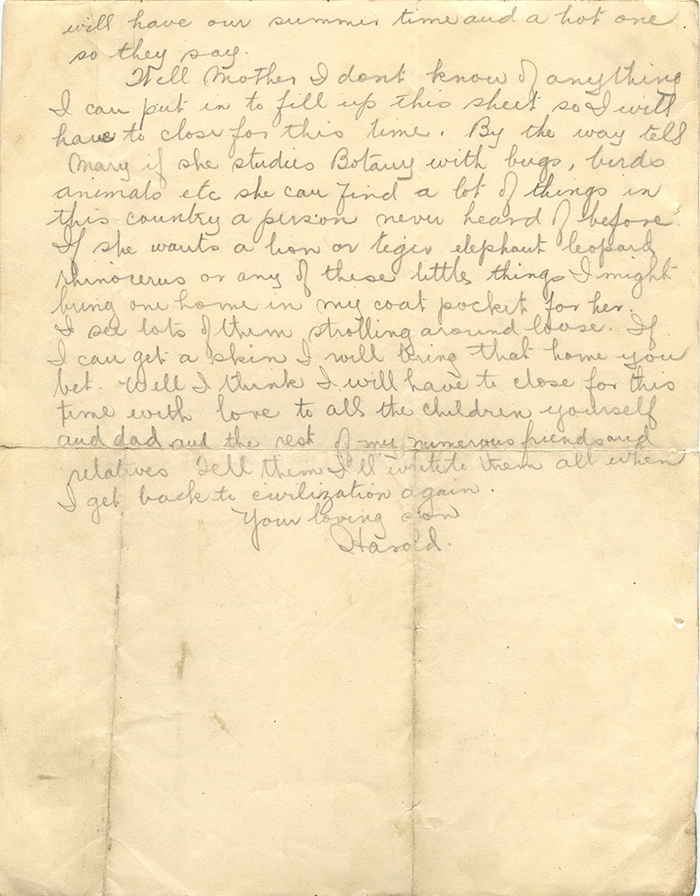 will have our summer time and a hot one
so they say.
Well Mother I dont know of anything
I can put in to fill up this sheet so I will
have to close for this time. By the way tell
Mary if she studies Botany with bugs, birds
animals etc she can find a lot of things in
this country a person never heard of before
If she wants a lion or tiger elephant leopard
rhinocerus or any of these little things I might
bring one home in my coat pocket for her.
I see lots of them strolling around loose. If
I can get a skin I will bring that home you
bet. Well I think I will have to close for this
time with love to all the children yourself
and dad and the rest of my numerous friends and
relatives Tell them I'll write to them all when
I get back to civilization again.
Your loving son
Harold.